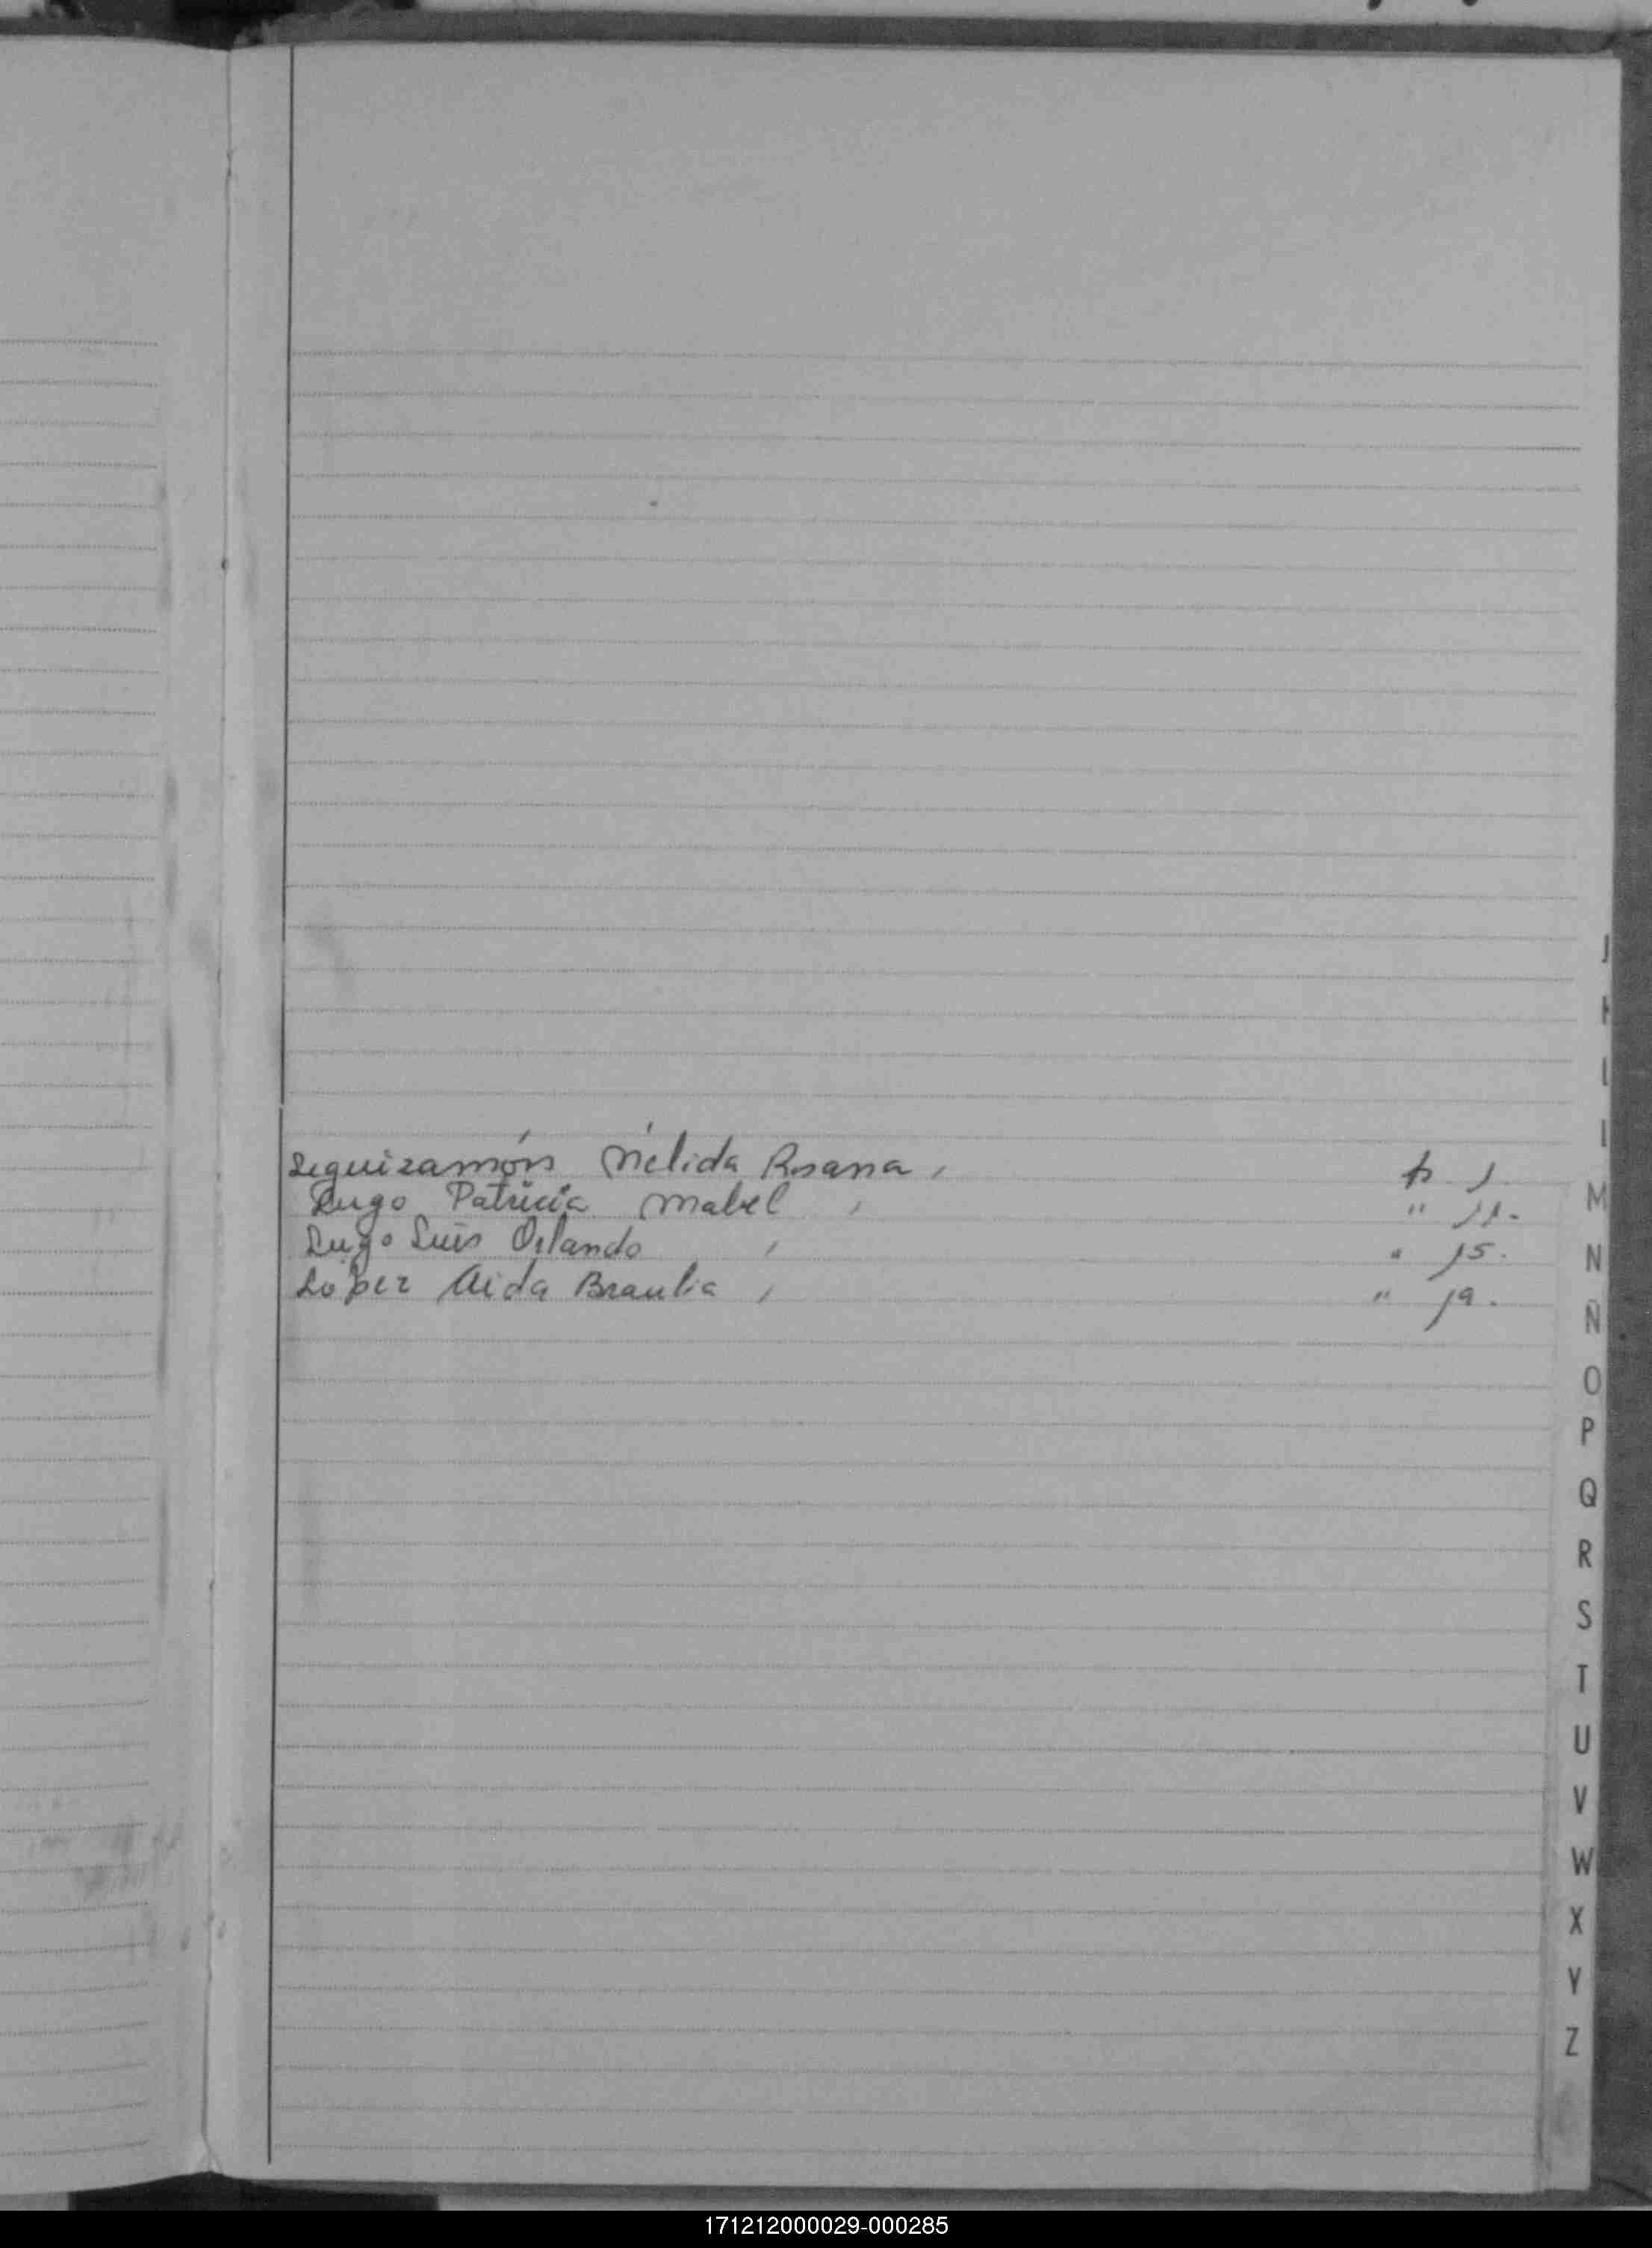 Leguizamón Nélida Rosana, p. 1.
Lugo Patricia Mabel, " 11.
Lugo Luis Orlando, " 15.
López Aida Braulia, " 19.
J
L
M
N
Ñ
O
P
Q
R
S
T
U
V
W
X
Y
Z
171212000029-000285